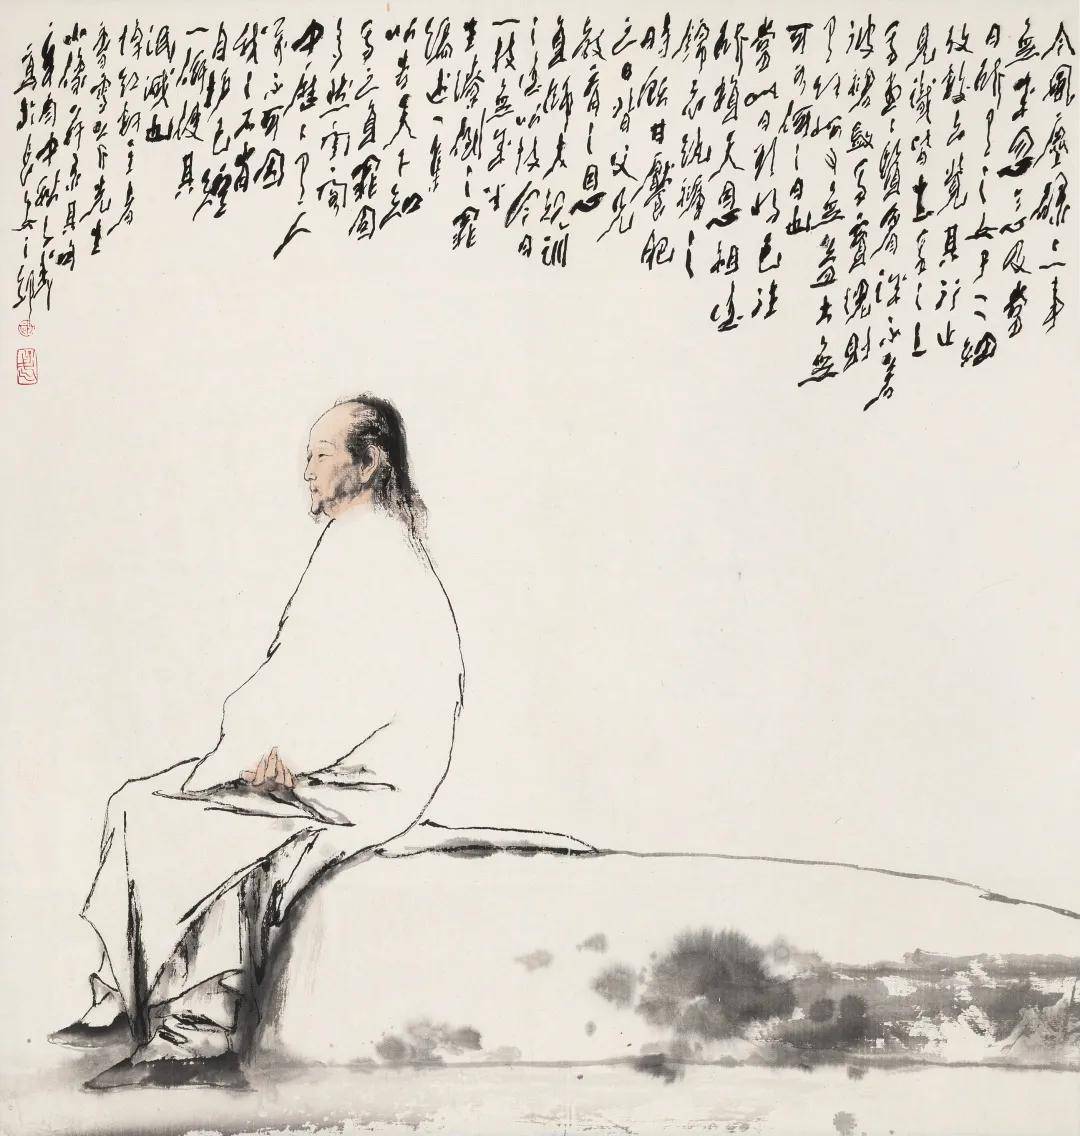 今風塵碌碌一事
無成忽念及當
日所有之女子一一細
較去覺其行止
見識皆出我之上
堂堂鬚眉誠不若
彼裙釵實愧則
有餘悔又無益大無
可如何之日也
當此日欲將已往
所賴天恩祖德
錦衣紈褲之
時飫甘饜肥
之日背父兄
教育之恩
負師友規訓
之德以致今日
一技無成半
生潦倒之罪
編述一集
以告天下知
我之負罪固
多然閨閣
中歷歷有人
萬不可因
我之不肖
自護己短
一併使其
泯滅也
悼紅軒主者
曹雪芹先生
像并錄其
中秋
寫於長安